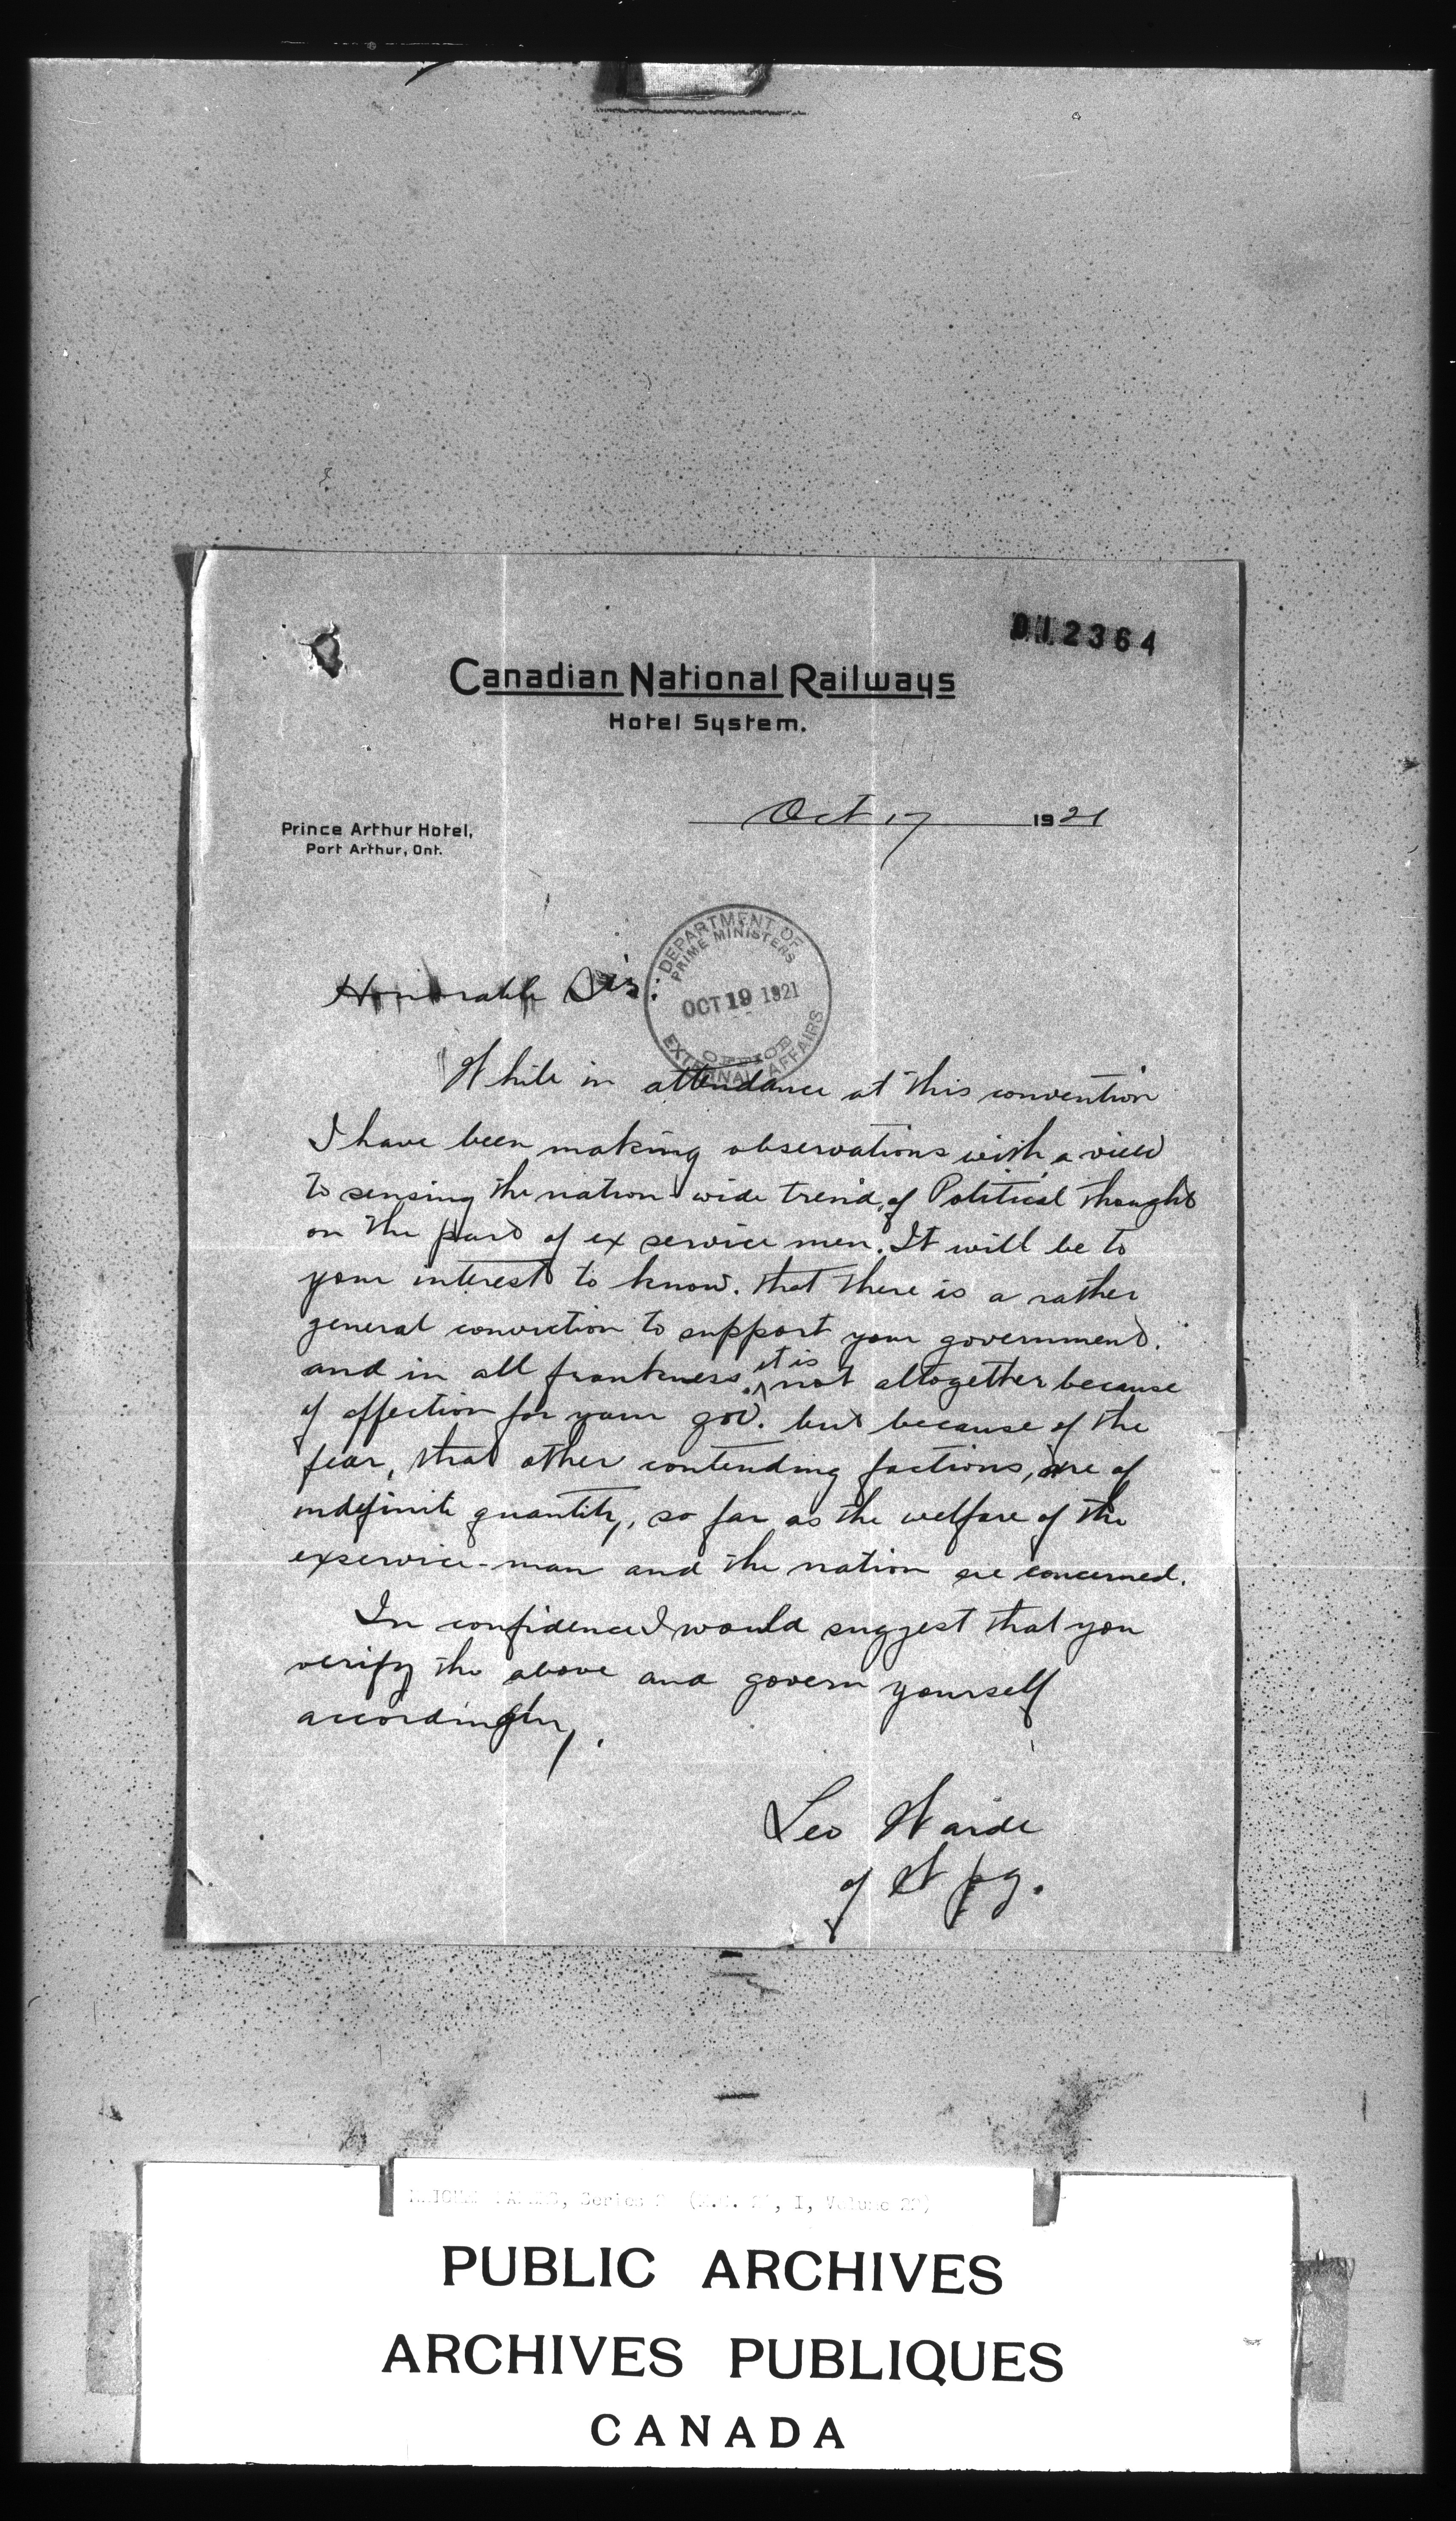 012364
Canadian National Railways
Hotel System.
Oct 17 1921
Prince Arthur Hotel,
Port Arthur, Ont.
DEPARTMENT OF
PRIME MINISTERS
OCT 19 1921
OFFICE
EXTERNAL AFFAIRS
Honorable Sir:
While in attendance at this convention
I have been making observations with a view
to sensing the nation wide trend, of Political thought
on the part of ex service men. It will be to
your interest to know. that there is a rather
general conviction to support your government.
and in all frankness, it is not altogether because
of affection for your gov. but because of the
fear, that other contending factions, are of
indefinite quantity, so far as the welfare of the
exservice-man and the nation are concerned.
In confidence I would suggest that you
verify the above and govern yourself
accordingly.
Leo Warde
of Wpg.
PAPERS, Series 2 (M.G. 26, I, Volume 22)
PUBLIC ARCHIVES
ARCHIVES PUBLIQUES
CANADA